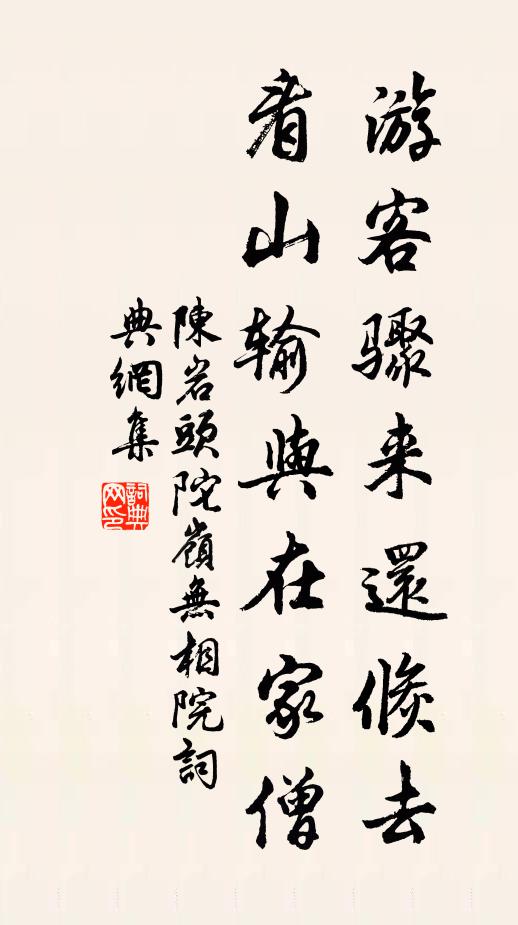 游客驟来還倐去
看山输與在家僧
陳岩頭陀嶺無相院詞
典網集
詞典网印